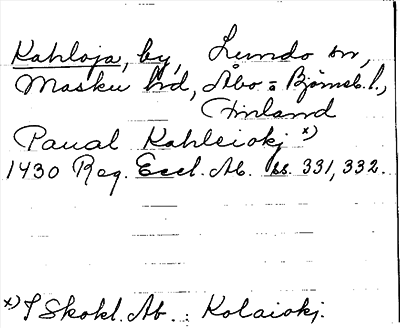 Kahloja, by, Lundo sn,
Masku hd, Åbo = Björneb. l.,
Finland
Paual Kahleiokj x)
1430 Reg. Eccl. Ab. ss. 331, 332.
x) I Skokl. Ab. : Kolaiokj.